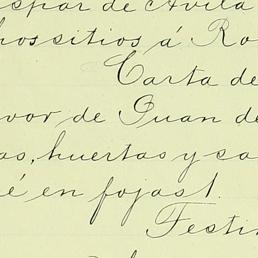 spar de Avila
hos sitios á Ro
Carta de
vor de Juan de
as, huertas y ca
é en fojas 1.
Festin